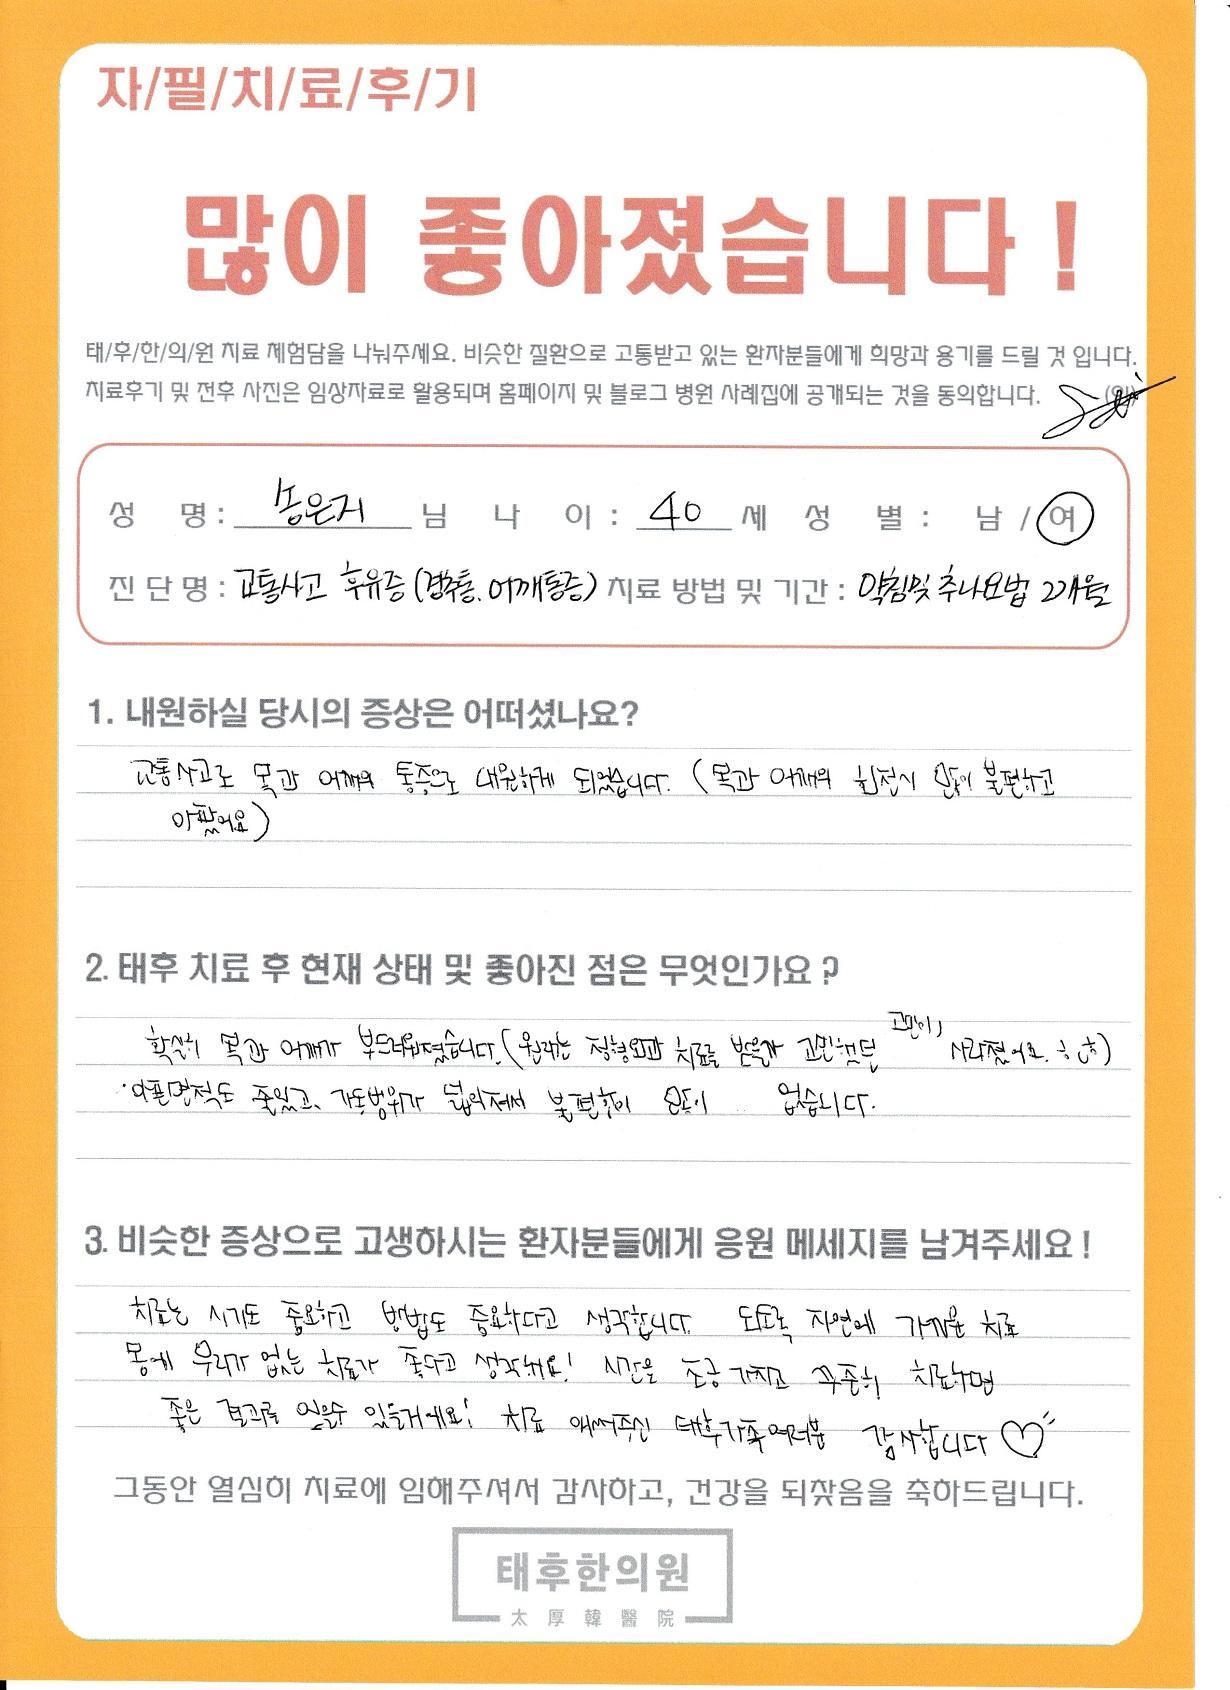 자/필/치/료/후/기
많이 좋아졌습니다!
태/후/한/의/원 치료 체험담을 나눠주세요. 비슷한 질환으로 고통받고 있는 환자분들에게 희망과 용기를 드릴 것 입니다.
치료후기 및 전후 사진은 임상자료로 활용되며 홈페이지 및 블로그 병원 사례집에 공개되는 것을 동의합니다. (인)
성 명 : 송은지 님 나 이 : 40 세 성 별 : 남 / 여
진 단 명 : 교통사고 후유증 (경추통, 어깨통증) 치료 방법 및 기간 : 약침및 추나요법 2개월
1. 내원하실 당시의 증상은 어떠셨나요?
교통사고로 목과 어깨의 통증으로 내원하게 되었습니다. (목과 어깨의 회전시 많이 불편하고
아팠어요)
2. 태후 치료 후 현재 상태 및 좋아진 점은 무엇인가요?
확실히 목과 어깨가 부드러워졌습니다. (원래는 정형외과 치료를 받을까 고민했던 고민이, 사라졌어요. ㅎㅎ)
아픈면적도 줄었고, 가동범위가 넓어져서 불편함이 많이 없습니다.
3. 비슷한 증상으로 고생하시는 환자분들에게 응원 메세지를 남겨주세요!
치료는 시기도 중요하고 방법도 중요하다고 생각합니다. 되도록 자연에 가까운 치료
몸에 무리가 없는 치료가 좋다고 생각해요! 시간을 조금 가지고 꾸준히 치료하면
좋은 결과를 얻을수 있을거예요! 치료 애써주신 태후가족여러분 감사합니다 ♡
그동안 열심히 치료에 임해주셔서 감사하고, 건강을 되찾음을 축하드립니다.
태후한의원
太厚韓醫院